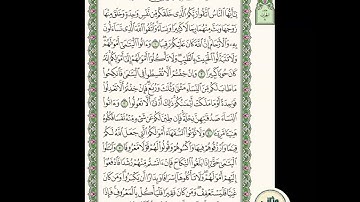 يَٰٓأَيُّهَا ٱلنَّاسُ ٱتَّقُوا۟ رَبَّكُمُ ٱلَّذِى خَلَقَكُم مِّن نَّفْسٍ وَٰحِدَةٍ وَخَلَقَ مِنْهَا
زَوْجَهَا وَبَثَّ مِنْهُمَا رِجَالًا كَثِيرًا وَنِسَآءً وَٱتَّقُوا۟ ٱللَّهَ ٱلَّذِى تَسَآءَلُونَ
بِهِۦ وَٱلْأَرْحَامَ إِنَّ ٱللَّهَ كَانَ عَلَيْكُمْ رَقِيبًا ١ وَءَاتُوا۟ ٱلْيَتَٰمَىٰٓ أَمْوَٰلَهُمْ
وَلَا تَتَبَدَّلُوا۟ ٱلْخَبِيثَ بِٱلطَّيِّبِ وَلَا تَأْكُلُوٓا۟ أَمْوَٰلَهُمْ إِلَىٰٓ أَمْوَٰلِكُمْ إِنَّهُۥ
كَانَ حُوبًا كَبِيرًا ٢ وَإِنْ خِفْتُمْ أَلَّا تُقْسِطُوا۟ فِى ٱلْيَتَٰمَىٰ فَٱنكِحُوا۟
مَا طَابَ لَكُم مِّنَ ٱلنِّسَآءِ مَثْنَىٰ وَثُلَٰثَ وَرُبَٰعَ فَإِنْ خِفْتُمْ أَلَّا تَعْدِلُوا۟
فَوَٰحِدَةً أَوْ مَا مَلَكَتْ أَيْمَٰنُكُمْ ذَٰلِكَ أَدْنَىٰٓ أَلَّا تَعُولُوا۟ ٣ وَءَاتُوا۟
ٱلنِّسَآءَ صَدُقَٰتِهِنَّ نِحْلَةً فَإِن طِبْنَ لَكُمْ عَن شَىْءٍ مِّنْهُ نَفْسًا فَكُلُوهُ
هَنِيٓـًٔا مَّرِيٓـًٔا ٤ وَلَا تُؤْتُوا۟ ٱلسُّفَهَآءَ أَمْوَٰلَكُمُ ٱلَّتِى جَعَلَ ٱللَّهُ لَكُمْ
قِيَٰمًا وَٱرْزُقُوهُمْ فِيهَا وَٱكْسُوهُمْ وَقُولُوا۟ لَهُمْ قَوْلًا مَّعْرُوفًا ٥ وَٱبْتَلُوا۟
ٱلْيَتَٰمَىٰ حَتَّىٰٓ إِذَا بَلَغُوا۟ ٱلنِّكَاحَ فَإِنْ ءَانَسْتُم مِّنْهُمْ رُشْدًا فَٱدْفَعُوٓا۟
إِلَيْهِمْ أَمْوَٰلَهُمْ وَلَا تَأْكُلُوهَآ إِسْرَافًا وَبِدَارًا أَن يَكْبَرُوا۟ وَمَن كَانَ
غَنِيًّا فَلْيَسْتَعْفِفْ وَمَن كَانَ فَقِيرًا فَلْيَأْكُلْ بِٱلْمَعْرُوفِ فَإِذَا